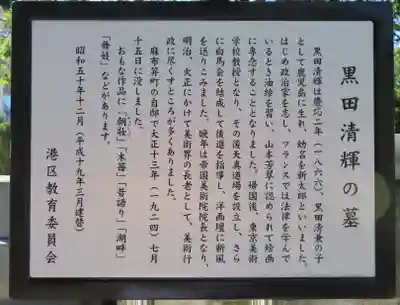 黒田清輝の墓
黒田清輝は慶応二年(一八六六)、黒田清兼の子
として鹿児島に生れ、幼名を新太郎といいました。
はじめ政治家を志し、フランスでは法律を学んで
いるとき油絵を習い、山本芳翠に認められて絵画
に専念することとなりました。帰国後、東京美術
学校教授となり、その後天真道場を設立し、さら
に白馬会を結成して後進を指導し、洋画壇に新風
を送りこみました。晩年は帝国美術院院長となり、
明治、大正にかけて美術界の長老として、美術行
政に尽くすところが多くありました。
麻布笄町の自邸で大正十三年(一九二四)七月
十五日に没しました。
おもな作品に「朝妝」「木苺」「昔語り」「湖畔」
「舞妓」などがあります。
昭和五十年十二月(平成十九年三月建替)
港区教育委員会